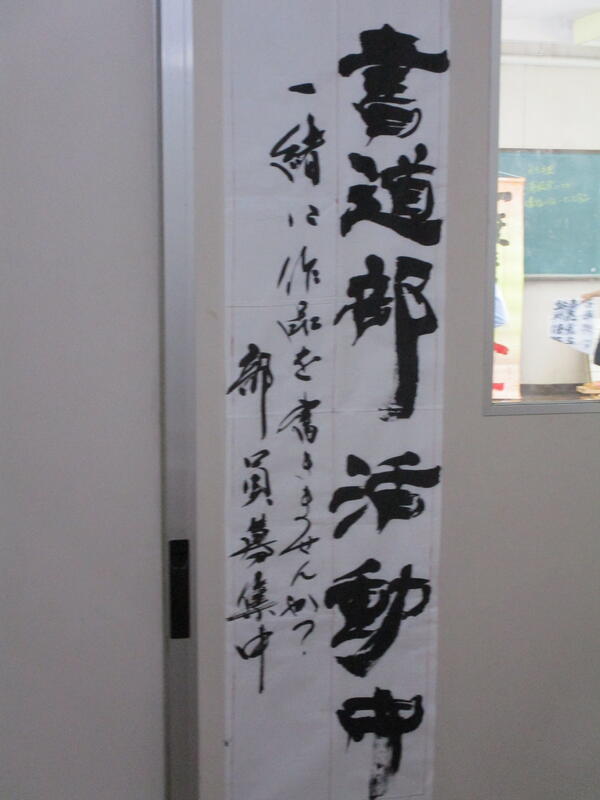 書道部 活動中
一緒に作品を書きませんか?
部員募集中